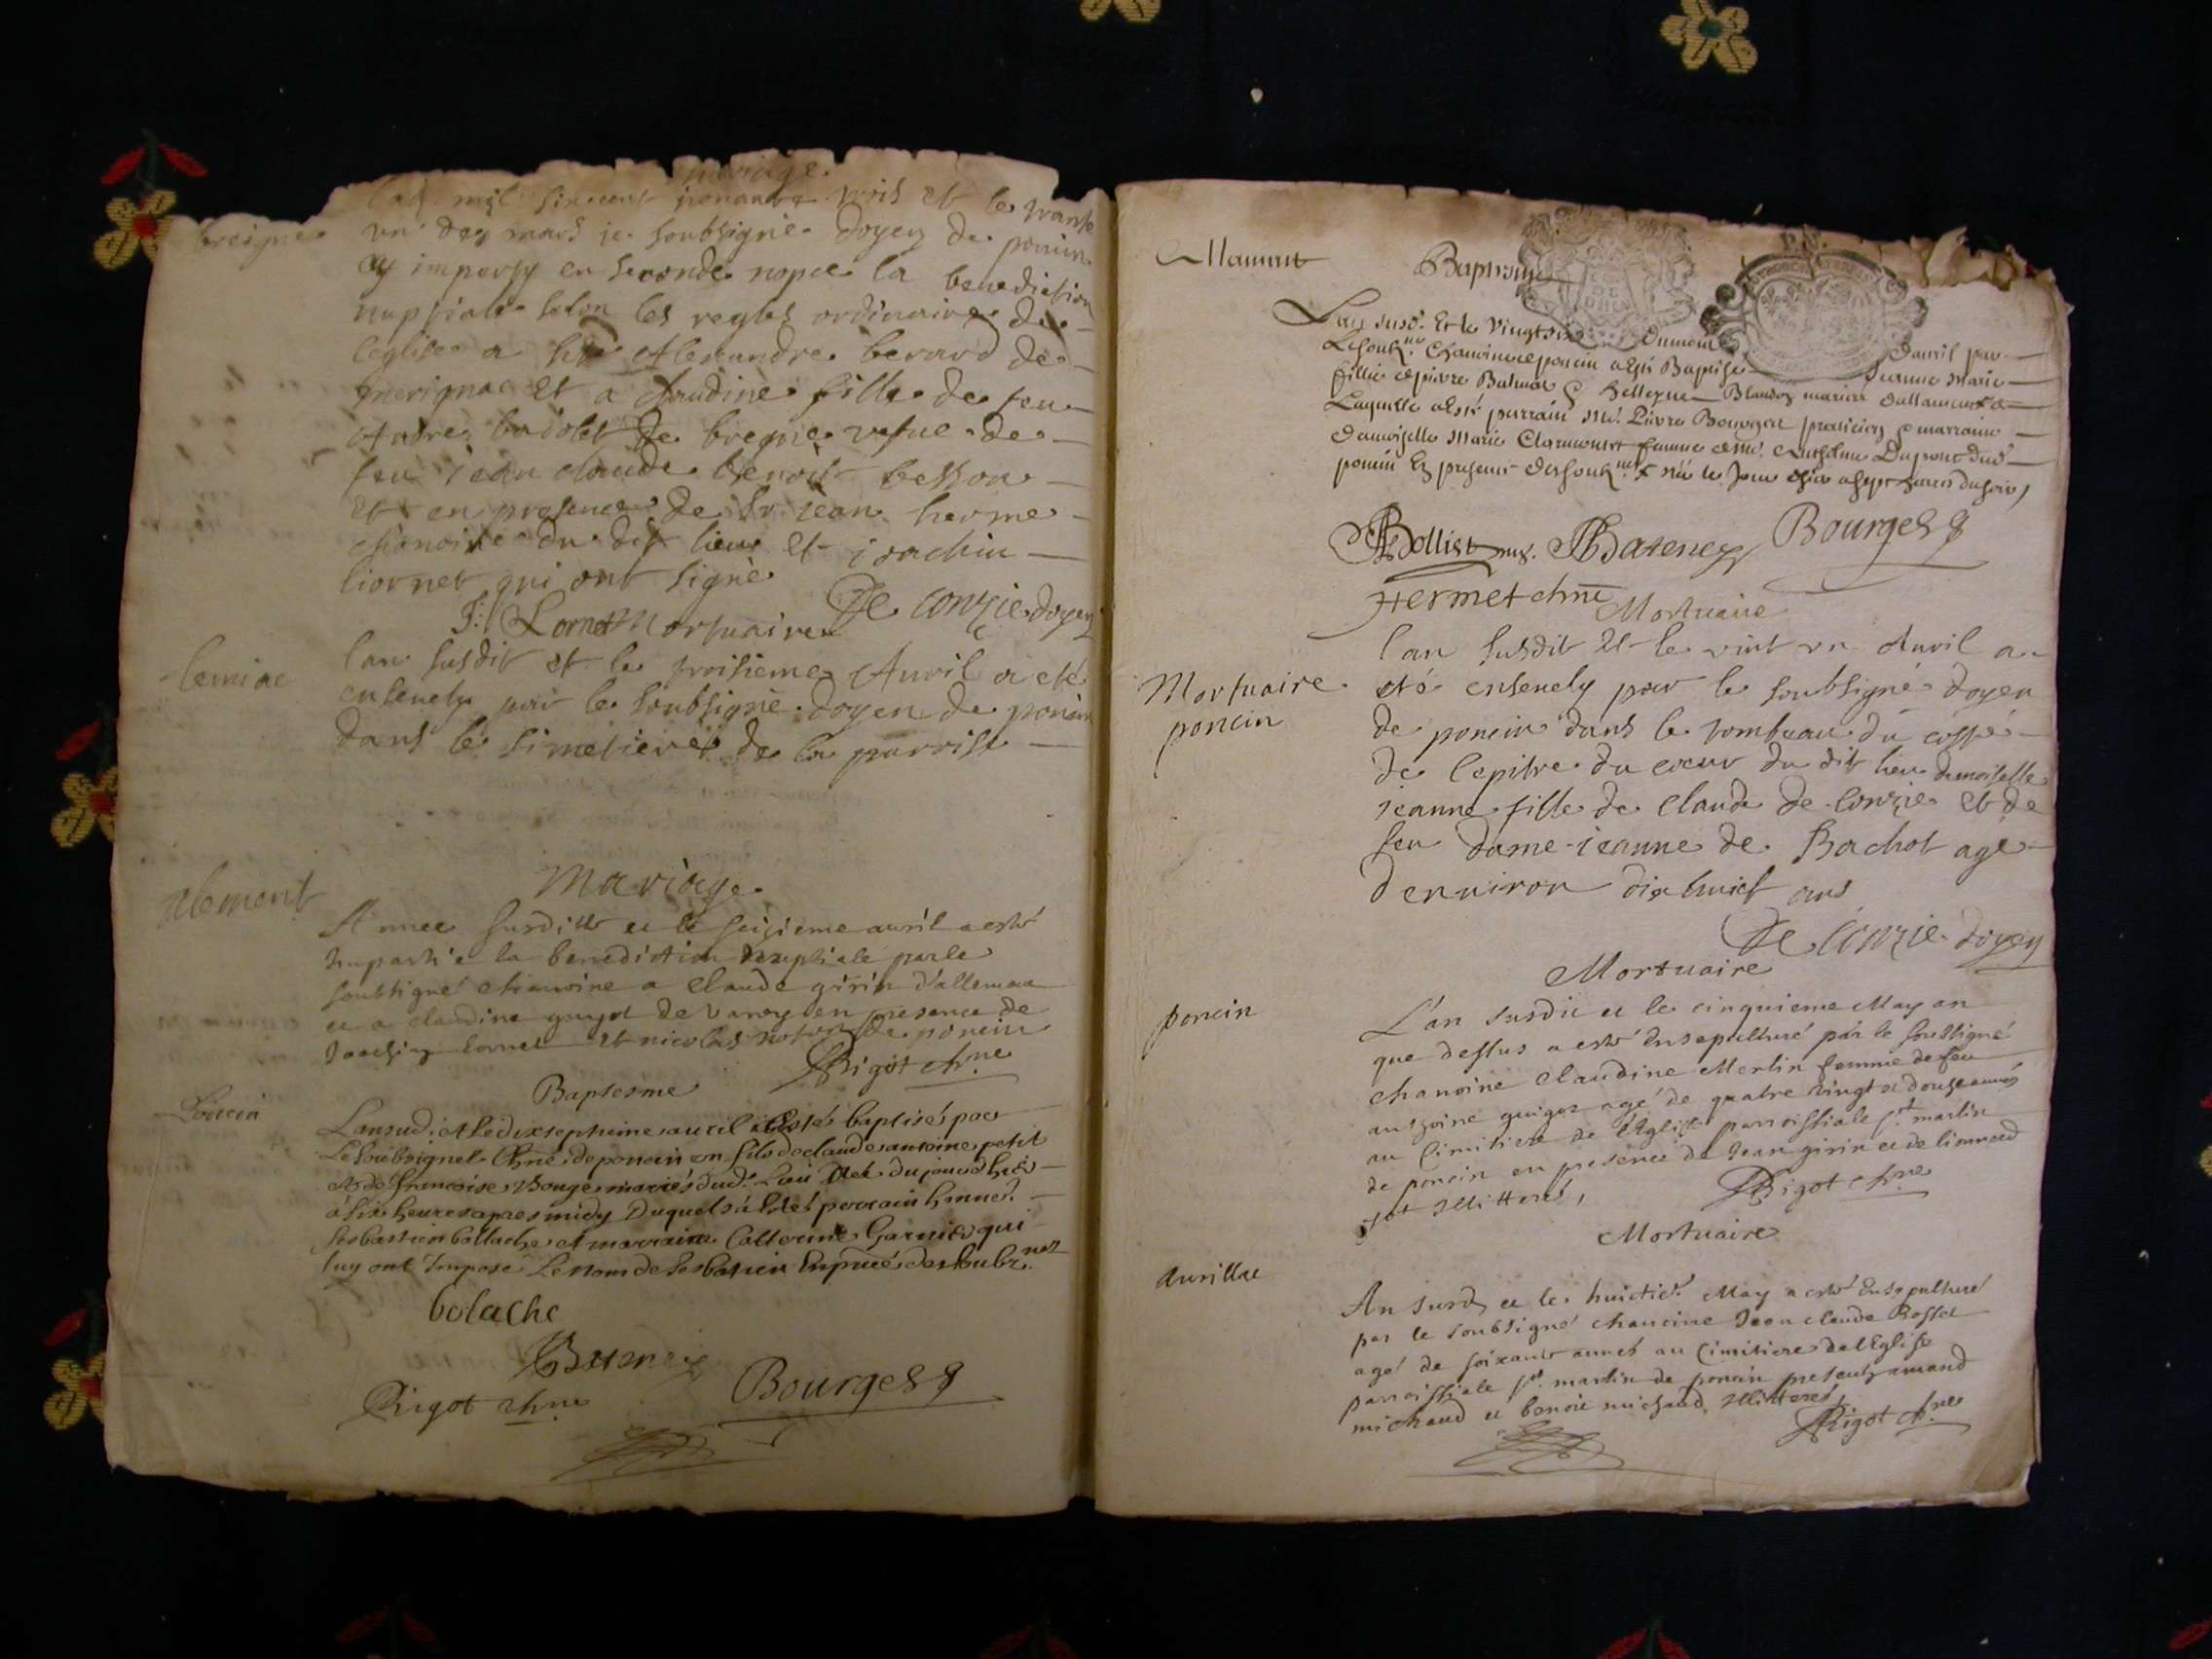 mariage
lan mil six cent nonante trois et le trante
breigne
un dey mars je soubsigné doyen de poncin
ay imparty en seconde nopce la benediction
nuptiale selon les regles ordinaire de
leglise a Alexandre berard de
merignac et a claudine fille de feu
Andre de vefue de
feu jean claude benoit besson
et en presence de sr jean herme
chanoine du dit lieu et joachin
liornet qui ont signé
De conzie doyen
J: Lornet Mortuaire
leniac
lan susdit et le troisieme Auril a eté
enseuely par le soubsigné doyen de poncin
dans le simetiere de la parrisse
Mariage
alement
Annee susditte et le seizieme auril a esté
impartie la benediction nuptiale par le
soubsigné chanoine a Claude girin d'alleman
et a claudine guyot de en presence de
Joachin Lornet et nicolas de poncin
Rigot chne
Baptesme
Poncin
Lansudi et le dixseptieme auril a Esté baptisé par
Le soubsigné Chne de poncin un fils de claude antoine petit
et de francoise Bouge mariés dud. Lieu Né du jourdhier
à six heures apres midy Duquel a Esté parrain honne.
Sebastien bollache et marraine Catterine Garnier qui
luy ont Imposé Le Nom de Sebastien En pnce des soubz.nez
bolache
Rigot chne
Bourges
Allemant
Baptesme
Lan susd. Et le Vingtsix Du mois d'auril par
Le soubz.né Chanoine de poncin a Esté Baptisé Jeanne Marie
fillie de pierre & Blandoz mariés dallament &
Laquelle a Esté parrain Me. Pierre Bourget praticien & marraine
damoiselle Marie Claremont femme de Me. Anthelme Dupont dud.
poncin En presence des soubz.nez & Née le Jour dhier a sept heures du soir
Bourges
Hermet chne
Mortuaire
Mortuaire
poncin
lan susdit et le vint un Auril a
eté enseuely par le soubsigné doyen
de poncin dans le tombeau du cossé
de lepitre du coeur du dit lieu damoiselle
jeanne fille de claude de conzie et de
feu dame jeanne de Bachot agé
d enuiron dix huict ans
De conzie doyen
Mortuaire
poncin
L'an susdit et le cinquieme May an
que dessus a esté Ensepulturé par le soussigné
chanoine Claudine Merlin femme de feu
antoine guigoz agé de quatre vingt et douse années
au Cimitiere de l'Eglise parroissiale St. martin
de poncin en presence de Jean girin et de
illitterés,
Rigot chne
Mortuaire
Aurillac
An susd. et le huictie. May a esté Ensepulturé
par le soubsigné chanoine Jean claude Rosset
agé de soixante annés au Cimitiere de l'Eglise
parroissiale St. martin de poncin presents amand
michaud et benoit michaud, illitterés
Rigot chne